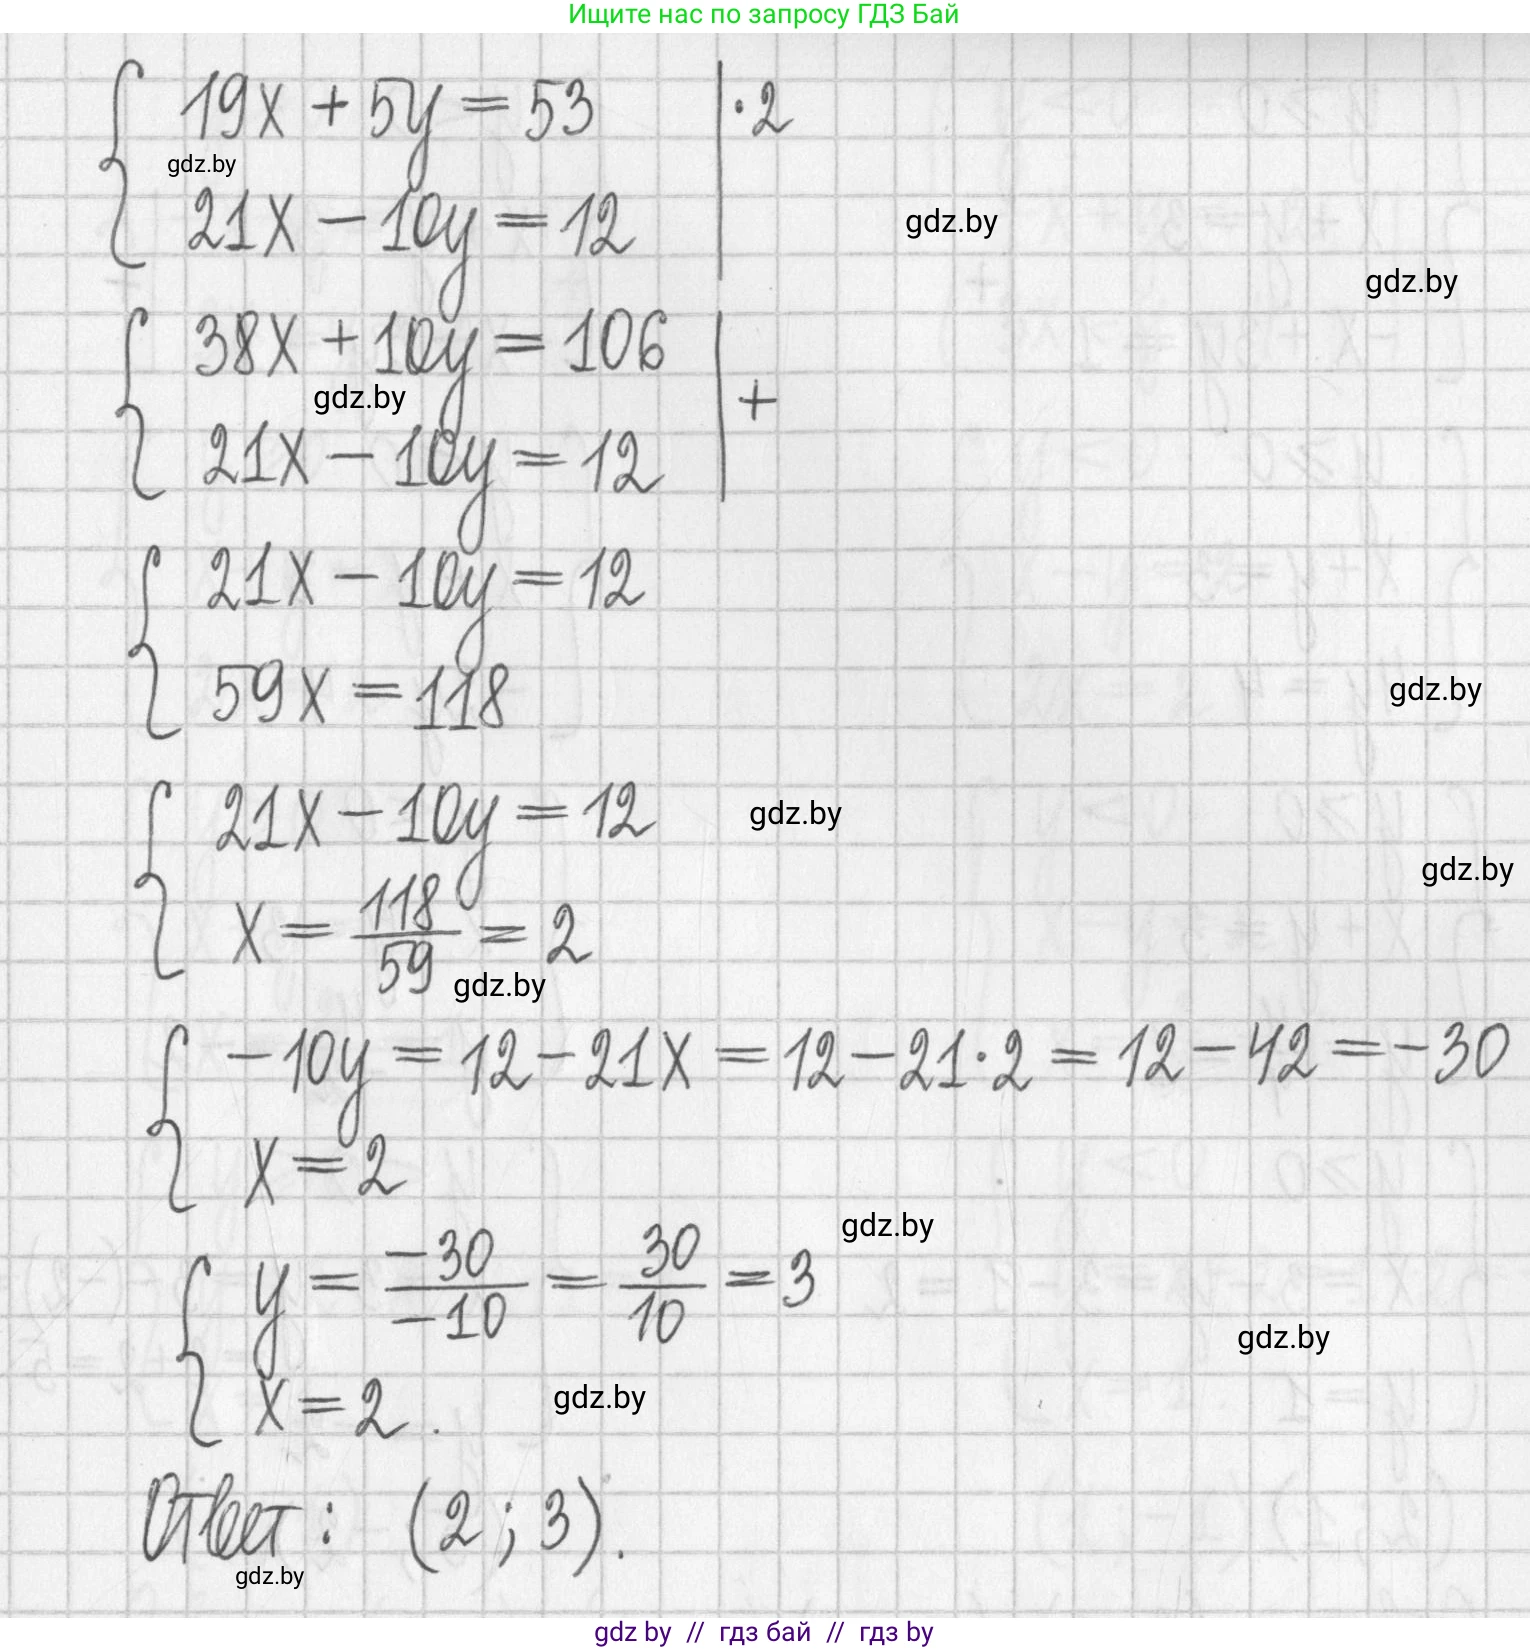 Ищите нас по запросу ГДЗ Бай
19x + 5y = 53 | ·2
gdz.by
21x − 10y = 12
gdz.by
gdz.by
38x + 10y = 106
gdz.by
+
21x − 10y = 12
21x − 10y = 12
59x = 118
gdz.by
21x − 10y = 12
gdz.by
gdz.by
x = 118/59 = 2
gdz.by
−10y = 12 − 21x = 12 − 21·2 = 12 − 42 = −30
x = 2
gdz.by
y = −30/−10 = 30/10 = 3
gdz.by
x = 2.
gdz.by
Ответ: (2; 3).
gdz.by
gdz by // гдз бай // гдз by